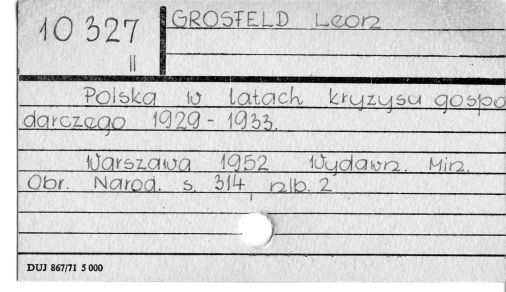 10 327
II
GROSFELD Leon
Polska w latach kryzysu gospo
darczego 1929-1933.
Warszawa 1952 Wydawn. Min.
Obr. Narod. s. 314, nlb. 2
DUJ 867/71 5 000